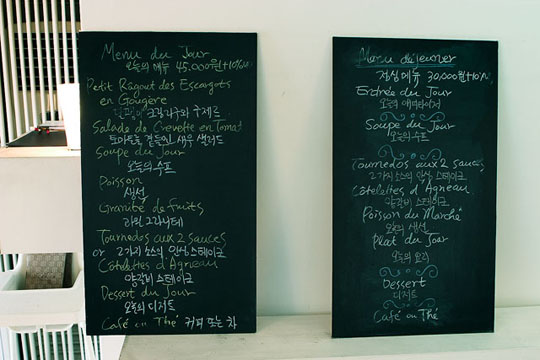 Menu du Jour
오늘의 메뉴 45.000원+10%
Petit Ragout des Escargots
en Gougère
Salade de Crevette en Tomat
토마토를 곁들인 새우 샐러드
Soupe du Jour
오늘의 수프
Poisson
생선
Granité de fruits
과일 그라니테
Tournedos aux 2 sauces
or 2가지 소스의 안심 스테이크
Côtelettes d'Agneau
양갈비 스테이크
Dessert du Jour
오늘의 디저트
Café ou Thé 커피 또는 차
Menu déjeuner
점심메뉴 30,000원+10%
Entrée du Jour
오늘의 애피타이저
Soupe du Jour
오늘의 수프
Tournedos aux 2 sauces
2가지 소스의 안심 스테이크
Côtelettes d'Agneau
양갈비 스테이크
Poisson du Marché
오늘의 생선
Plat du Jour
오늘의 요리
Dessert
디저트
Café ou Thé